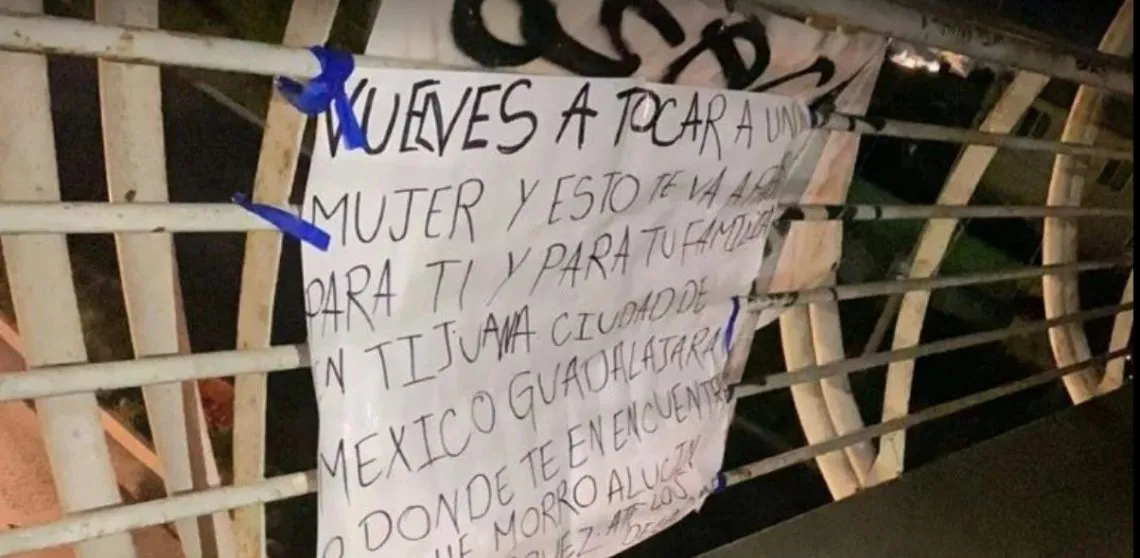 VUELVES A TOCAR A UNA
MUJER Y ESTO TE VA A
PARA TI Y PARA TU FAMILIA
EN TIJUANA CIUDAD DE
MEXICO GUADALAJARA
O DONDE TE EN ENCUENTRA
MORRO ALUCIN
ATE LOS